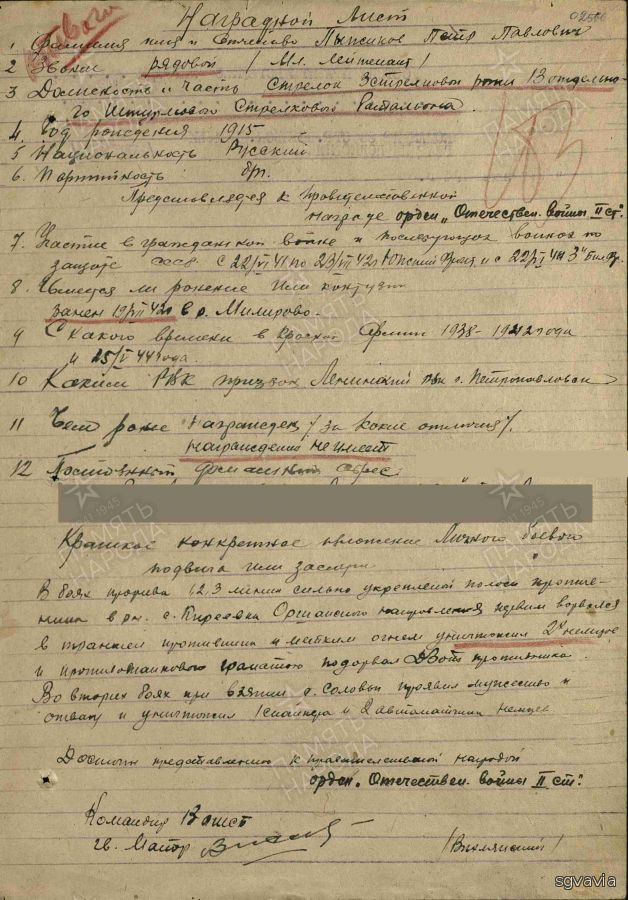 Наградной Лист
1. Фамилия имя и Отчество Пыжиков Петр Павлович
2 Звание рядовой / Мл. Лейтенант /
3 Должность и часть Стрелок 3 стрелковой роты 13 отдельно-
го Штурмового Стрелкового Батальона
4. Год рождения 1915
5 Национальность Русский
6. Партийность б/п.
Представляется к Правительственной
награде орден "Отечествен. войны II ст".
7. Участие в гражданской войне и последующих войнах по
защите СССР с 22/VI 41 по
8. Имеется ли ранение или контузии
в р. Милирово.
9 С какого времени в Красной Армии 1938-1942 года
и 25/V 44 года.
10 Каким РВК призван Ленинский рвк г. Петропавловск
11 Чем ранее награжден / за какие отличия /.
награждений не имеет
12 Постоянный домашний адрес
Краткое конкретное изложение Личного боевого
подвига или заслуги
В боях прорыва 1 2, 3 линии сильно укрепленой полосы против-
ника в рн. с. Киреевка Оршанского направления первым ворвался
в траншеи противника и метким огнем уничтожил 2х немцев
и противотанковой гранатой подорвал ДЗОТ противника
Во вторых боях при взятии д. Соловьи проявил мужество и
отвагу и уничтожил 1 снайпера и 2 автоматчика немцев
Достоин представлению к правительственной награде
орден "Отечествен. войны II ст".
Командир 13 ошсб
гв. Майор
ПАМЯТЬ НАРОДА
sgvavia